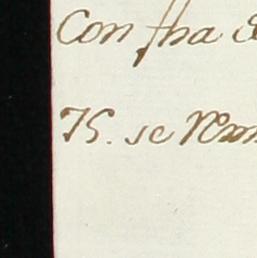 Con fha
15. se Rem